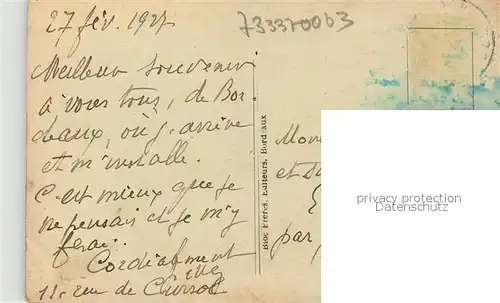 27 fév. 1927
733370063
Meilleur souvenir
à vous tous, de Bor-
deaux, où j'arrive
et m'installe.
C'est mieux que je
ne pensais et je m'y
ferai.
Cordialement
11, rue de Cursol
Bloc Frères, Editeurs, Bordeaux
Mon
et
par
privacy protection
Datenschutz